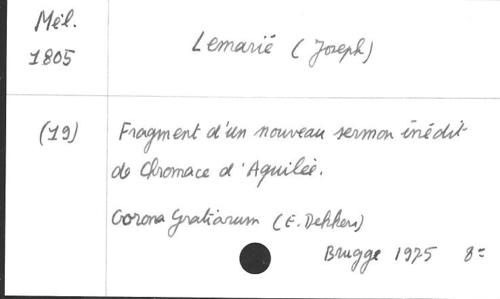 Mél.
1805
Lemarié (Joseph)
(19)
Fragment d'un nouveau sermon inédit
de Chromace d'Aquilée.
Corona Gratiarum (E. Dekkers)
Brugge 1975 8=